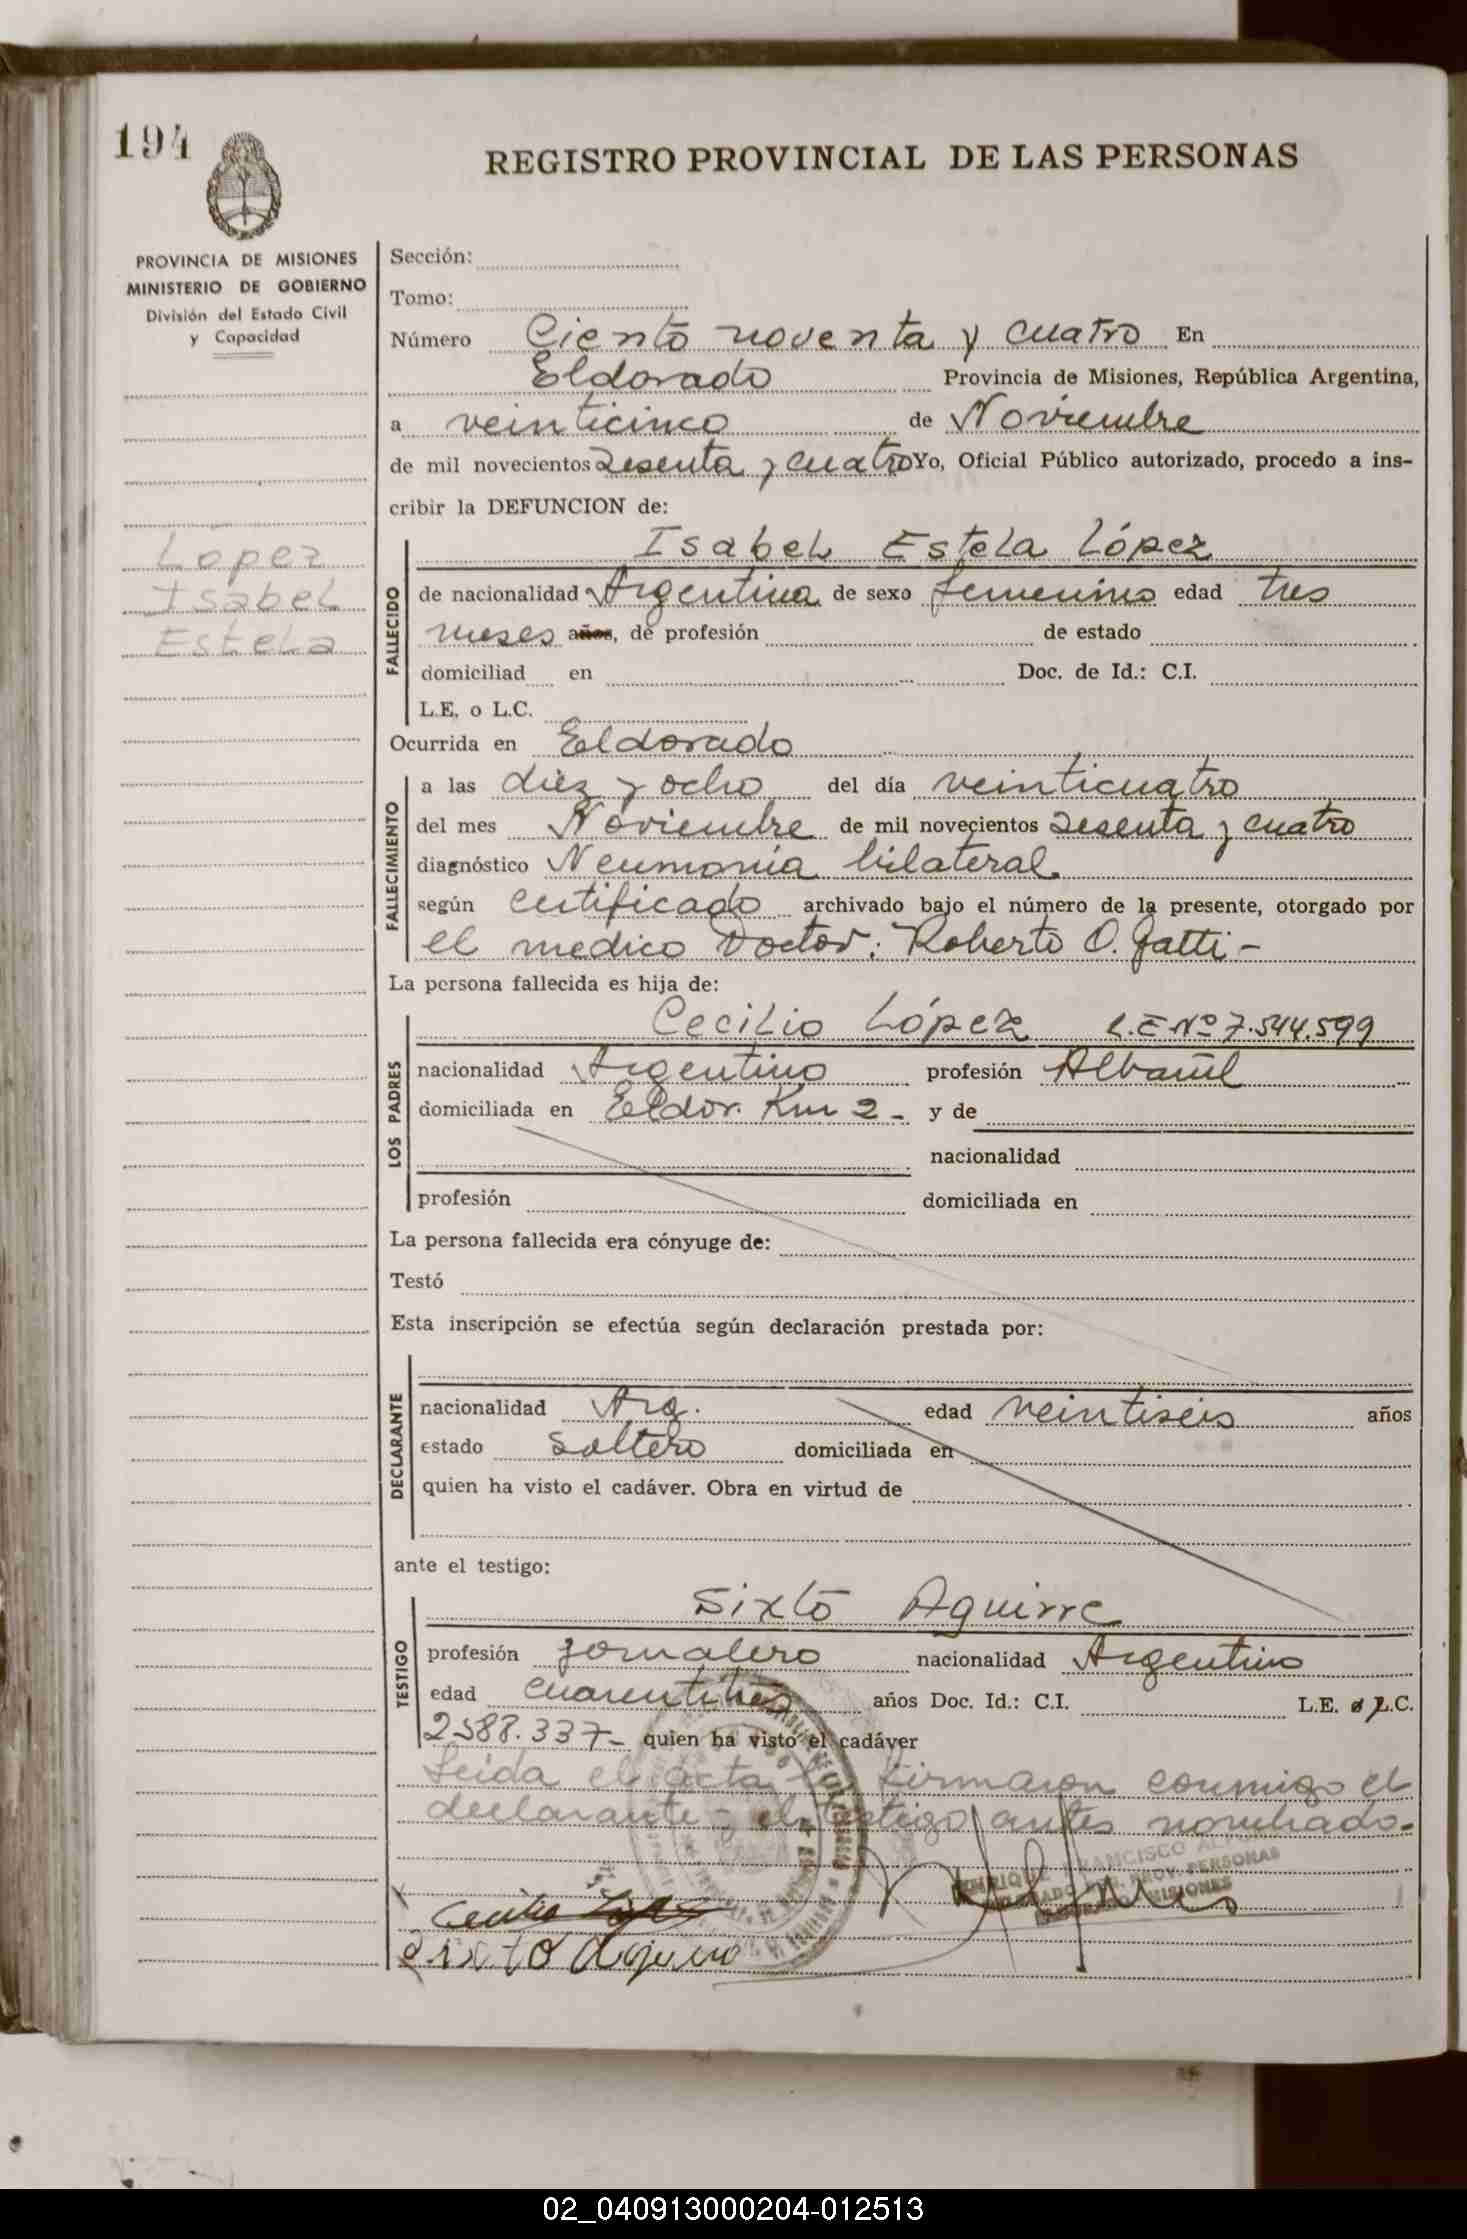 194
REGISTRO PROVINCIAL DE LAS PERSONAS
PROVINCIA DE MISIONES
MINISTERIO DE GOBIERNO
División del Estado Civil
y Capacidad
Lopez
Isabel
Estela
Sección:
Tomo:
Número Ciento noventa y cuatro En
Eldorado Provincia de Misiones, República Argentina,
a veinticinco de Noviembre
de mil novecientos sesenta y cuatro Yo, Oficial Público autorizado, procedo a ins-
cribir la DEFUNCION de:
FALLECIDO
Isabel Estela López
de nacionalidad Argentina de sexo femenino edad tres
meses años, de profesión de estado
domiciliad en Doc. de Id.: C.I.
L.E. o L.C.
Ocurrida en Eldorado
FALLECIMIENTO
a las diez y ocho del día veinticuatro
del mes Noviembre de mil novecientos sesenta y cuatro
diagnóstico Neumonia bilateral
según certificado archivado bajo el número de la presente, otorgado por
el medico Doctor: Roberto O. Gatti -
La persona fallecida es hija de:
LOS PADRES
Cecilio López L.E Nº 7.544.599
nacionalidad Argentino profesión Albañil
domiciliada en Eldor. Km 2 - y de
nacionalidad
profesión domiciliada en
La persona fallecida era cónyuge de:
Testó
Esta inscripción se efectúa según declaración prestada por:
DECLARANTE
nacionalidad Arg. edad veintiseis años
estado soltero domiciliada en
quien ha visto el cadáver. Obra en virtud de
ante el testigo:
TESTIGO
Sixto Aguirre
profesión Jornalero nacionalidad Argentino
edad cuarentitres años Doc. Id.: C.I. L.E. o L.C.
2588.337- quien ha visto el cadáver
Leida el acta la firmaron conmigo el
declarante y el testigo antes nombrado.
FRANCISCO
PROV. PERSONAS
MISIONES
Cecilio López
Sixto Aguirre
02_040913000204-012513